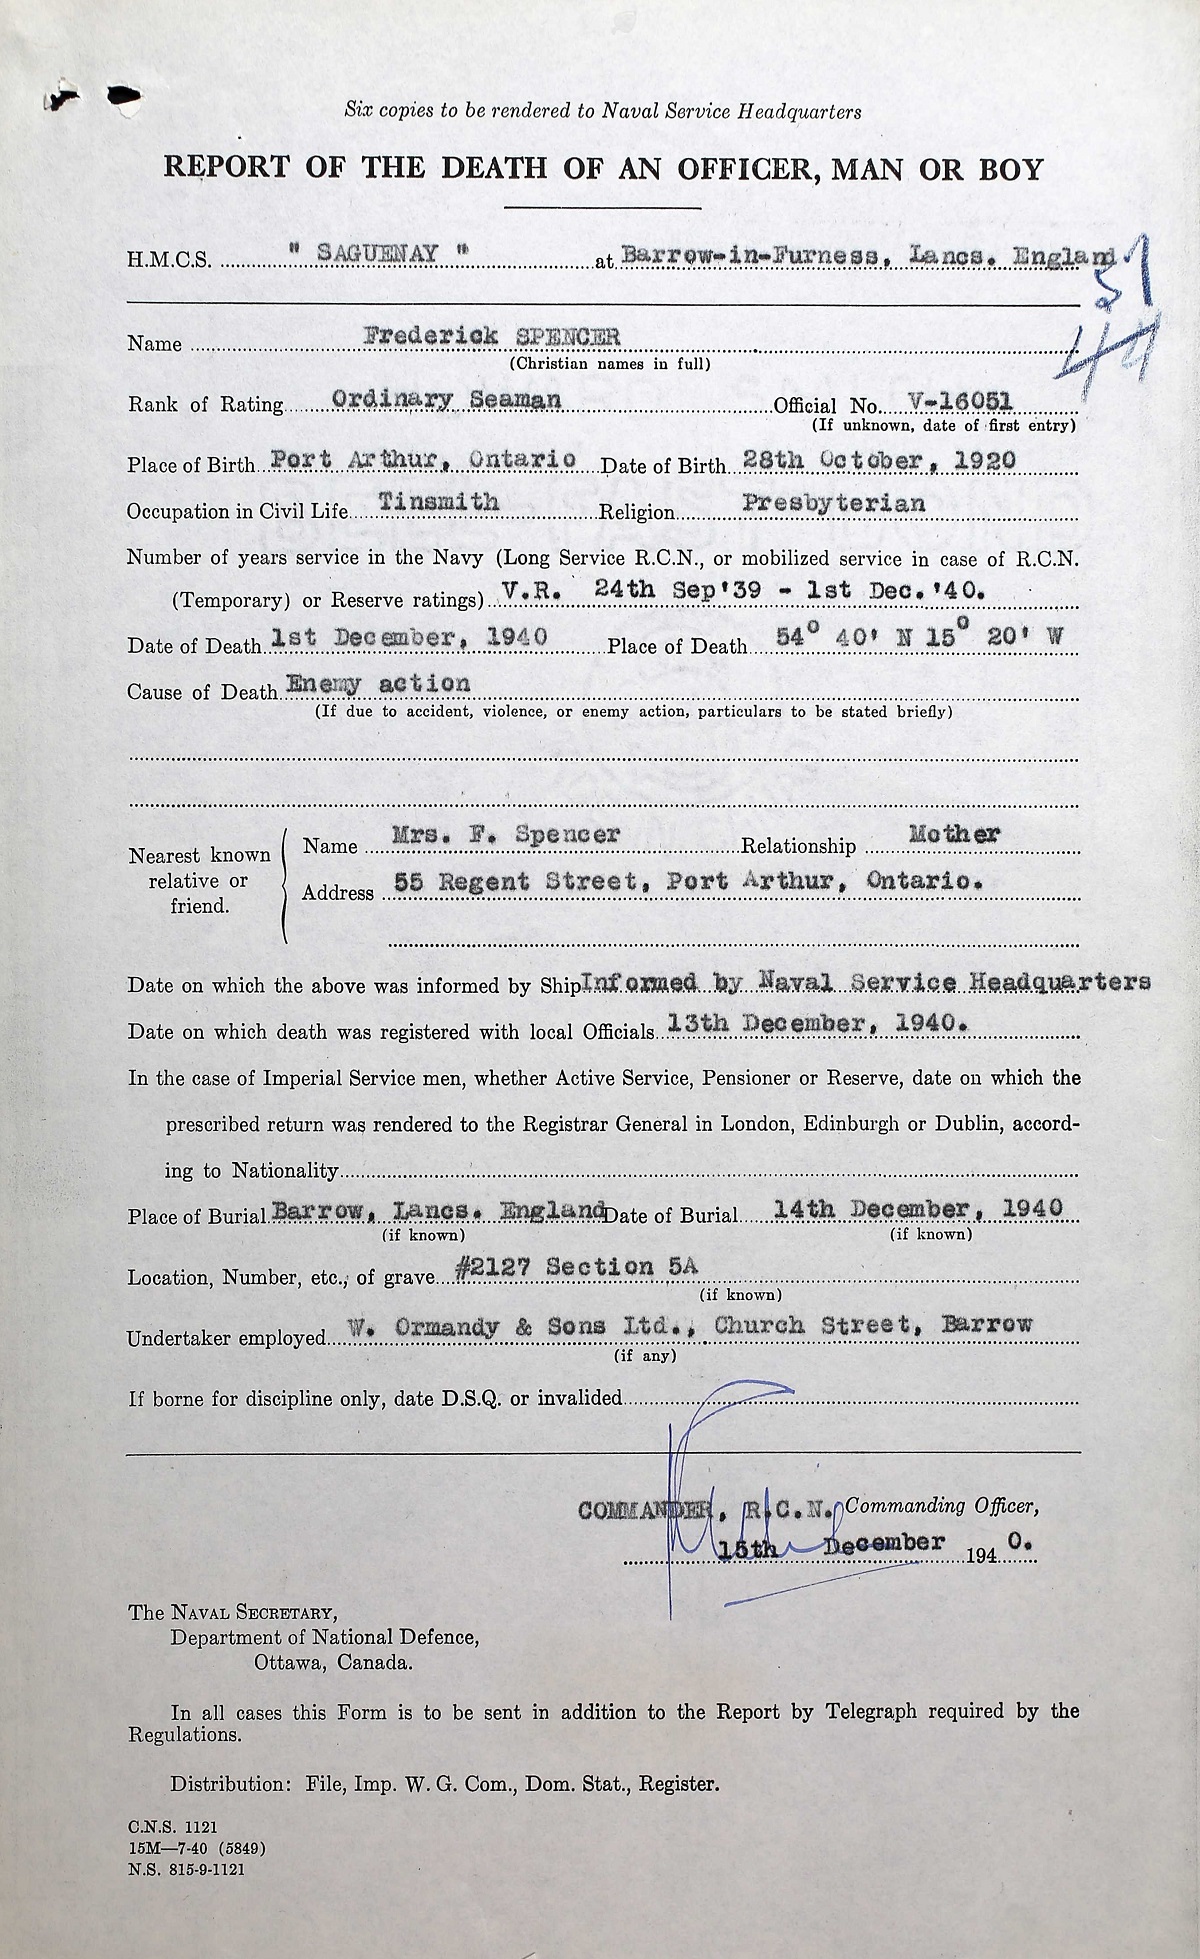 Six copies to be rendered to Naval Service Headquarters
REPORT OF THE DEATH OF AN OFFICER, MAN OR BOY
H.M.C.S. " SAGUENAY " at Barrow-in-Furness, Lancs. England
51
44
Name Frederick SPENCER
(Christian names in full)
Rank of Rating Ordinary Seaman Official No. V-16051
(If unknown, date of first entry)
Place of Birth Port Arthur, Ontario Date of Birth 28th October, 1920
Occupation in Civil Life Tinsmith Religion Presbyterian
Number of years service in the Navy (Long Service R.C.N., or mobilized service in case of R.C.N.
(Temporary) or Reserve ratings) V.R. 24th Sep'39 - 1st Dec.'40.
Date of Death 1st December, 1940 Place of Death 54° 40' N 15° 20' W
Cause of Death Enemy action
(If due to accident, violence, or enemy action, particulars to be stated briefly)
Nearest known relative or friend.
Name Mrs. F. Spencer Relationship Mother
Address 55 Regent Street, Port Arthur, Ontario.
Date on which the above was informed by Ship Informed by Naval Service Headquarters
Date on which death was registered with local Officials 13th December, 1940.
In the case of Imperial Service men, whether Active Service, Pensioner or Reserve, date on which the
prescribed return was rendered to the Registrar General in London, Edinburgh or Dublin, accord-
ing to Nationality
Place of Burial Barrow, Lancs. England Date of Burial 14th December, 1940
(if known) (if known)
Location, Number, etc., of grave #2127 Section 5A
(if known)
Undertaker employed W. Ormandy & Sons Ltd., Church Street, Barrow
(if any)
If borne for discipline only, date D.S.Q. or invalided
COMMANDER, R.C.N. Commanding Officer,
15th December 1940.
The NAVAL SECRETARY,
Department of National Defence,
Ottawa, Canada.
In all cases this Form is to be sent in addition to the Report by Telegraph required by the
Regulations.
Distribution: File, Imp. W. G. Com., Dom. Stat., Register.
C.N.S. 1121
15M—7-40 (5849)
N.S. 815-9-1121